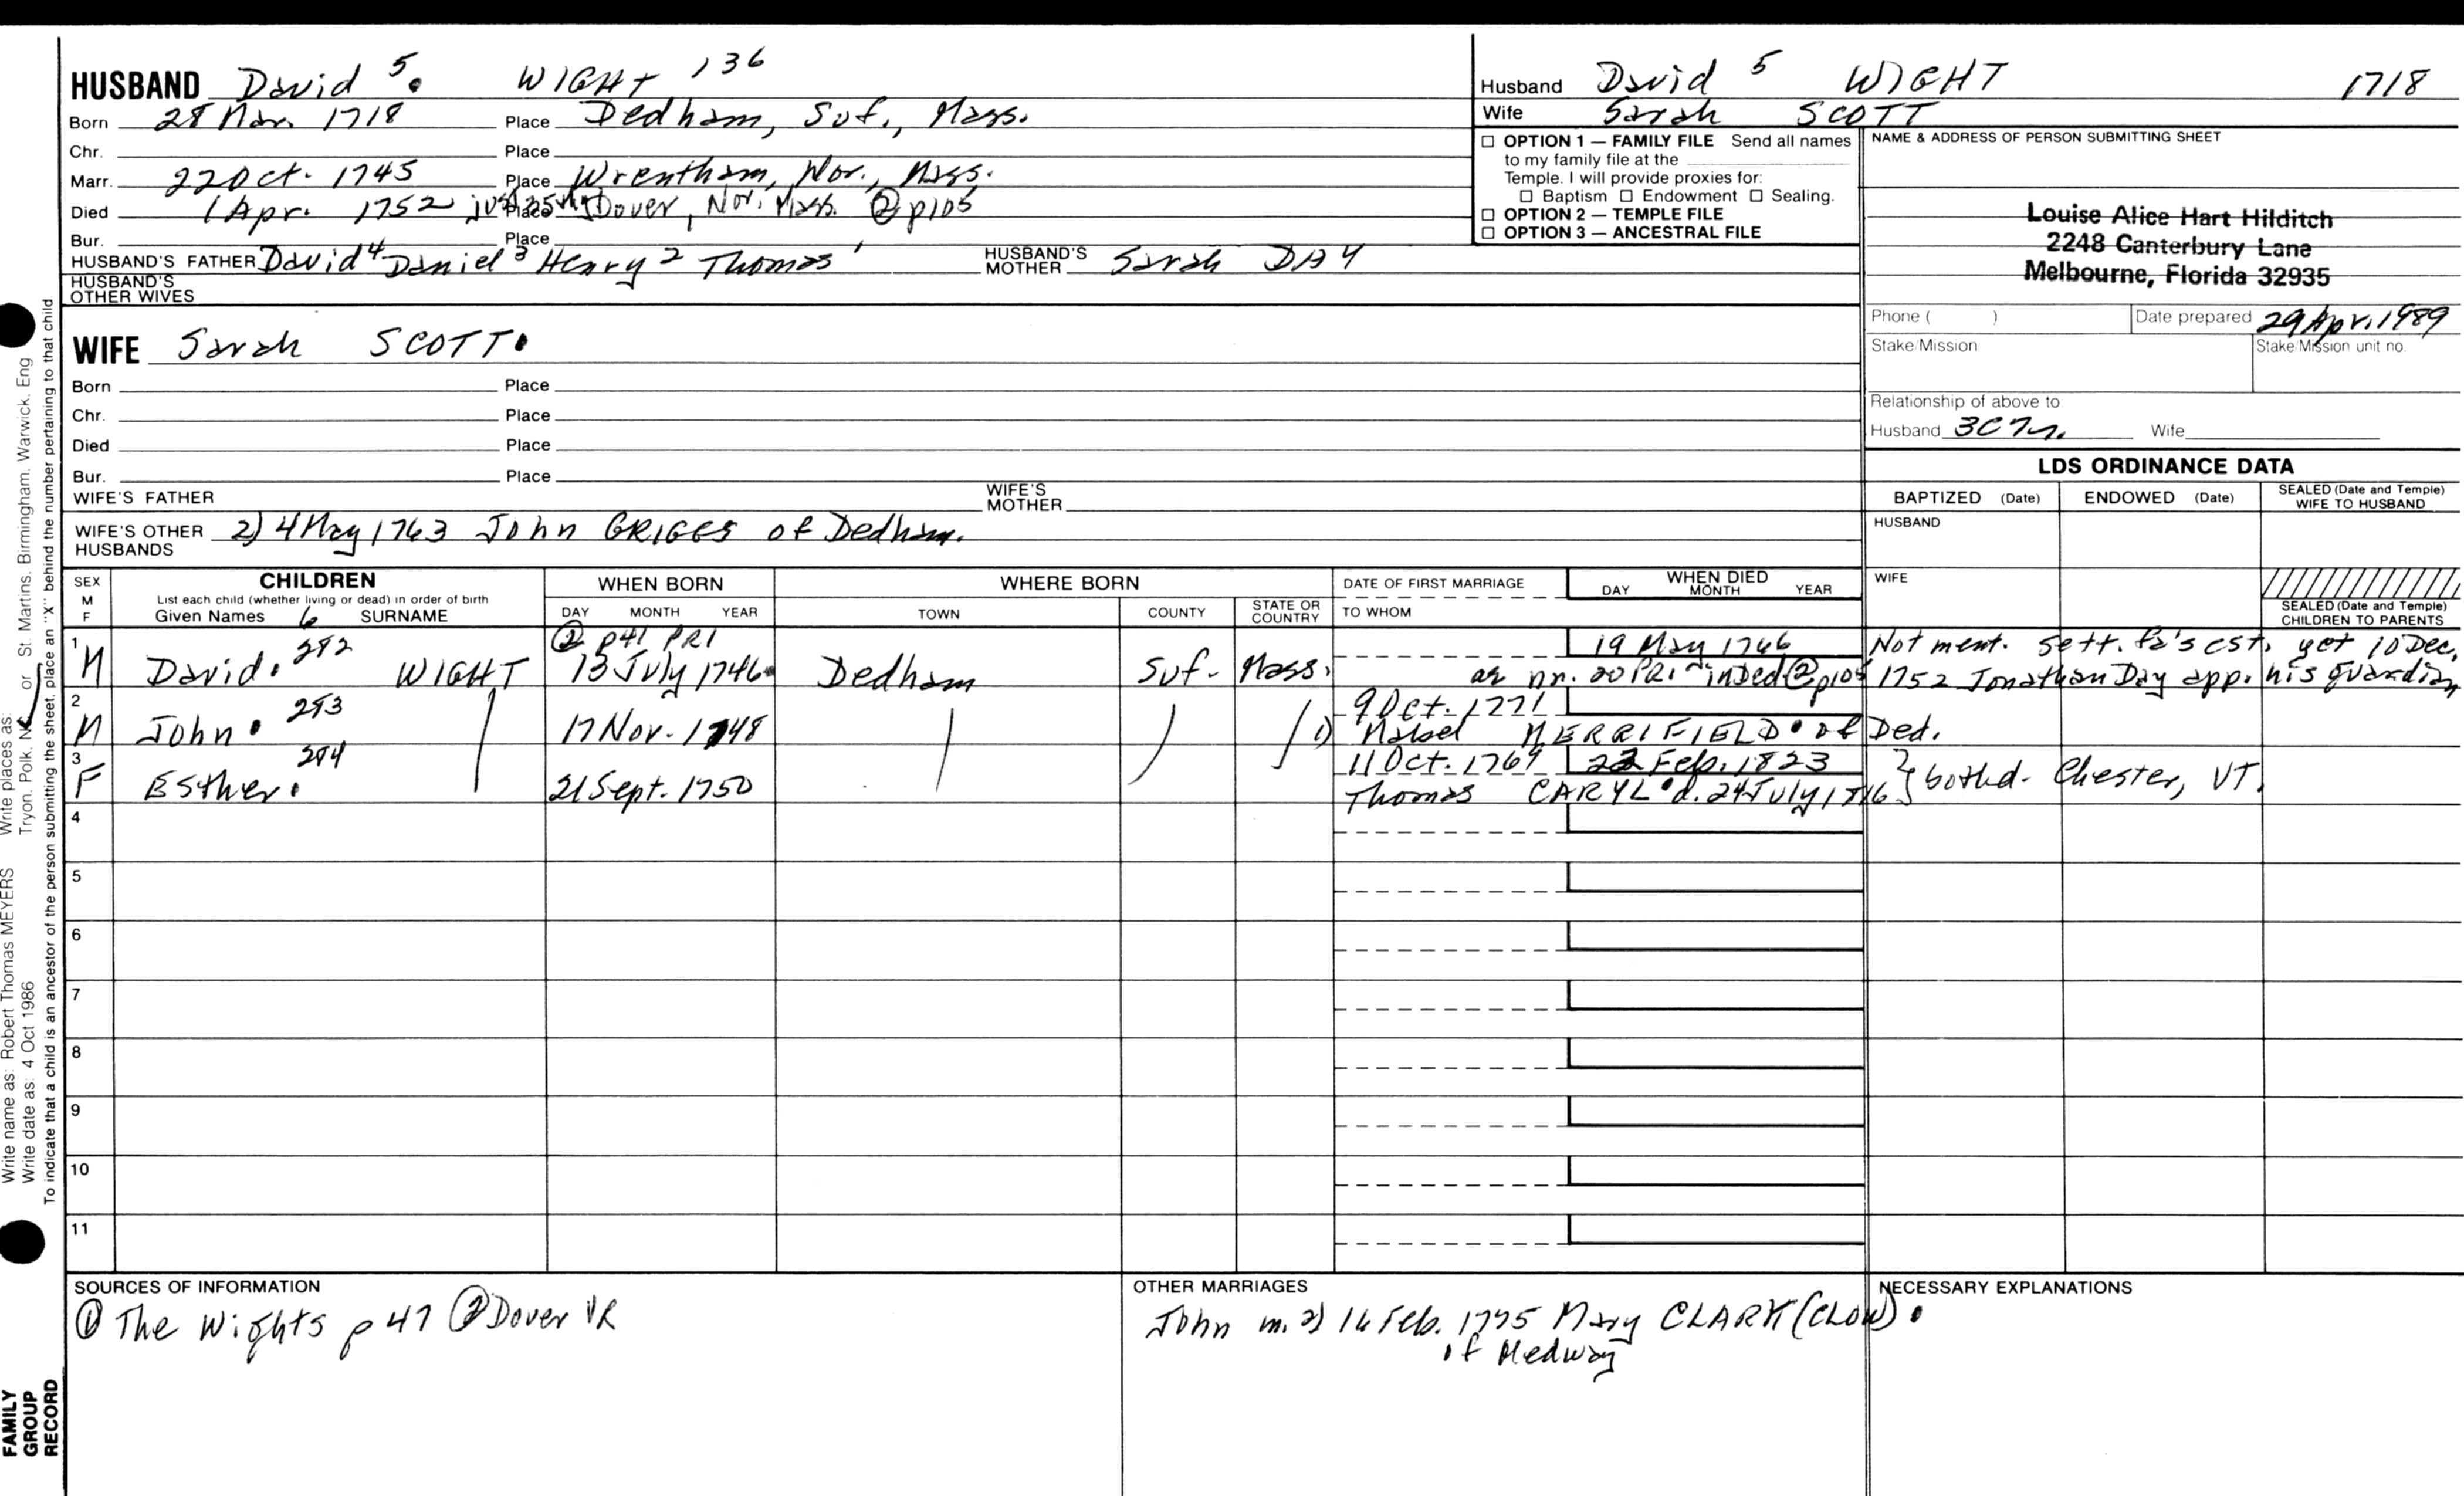 HUSBAND David 5. WIGHT 136
Born 28 Mar. 1718 Place Dedham, Suf., Mass.
Chr. Place
Marr. 22 Oct. 1745 Place Wrentham, Nor., Mass.
Died 1 Apr. 1752 Place Dover, Nor. Mass. ② p105
Bur. Place
HUSBAND'S FATHER David 4 Daniel 3 Henry 2 Thomas 1 HUSBAND'S MOTHER Sarah DAY
HUSBAND'S OTHER WIVES
Husband David 5 WIGHT 1718
Wife Sarah SCOTT
☐ OPTION 1 — FAMILY FILE Send all names
to my family file at the
Temple. I will provide proxies for:
☐ Baptism ☐ Endowment ☐ Sealing.
☐ OPTION 2 — TEMPLE FILE
☐ OPTION 3 — ANCESTRAL FILE
NAME & ADDRESS OF PERSON SUBMITTING SHEET
Louise Alice Hart Hilditch
2248 Canterbury Lane
Melbourne, Florida 32935
Phone ( ) Date prepared 29 Apr. 1989
Stake/Mission Stake/Mission unit no.
Relationship of above to
Husband 3C7r. Wife
WIFE Sarah SCOTT.
Born Place
Chr. Place
Died Place
Bur. Place
WIFE'S FATHER WIFE'S MOTHER
WIFE'S OTHER HUSBANDS 2) 4 May 1763 John GRIGGS of Dedham.
LDS ORDINANCE DATA
BAPTIZED (Date) ENDOWED (Date) SEALED (Date and Temple) WIFE TO HUSBAND
HUSBAND
WIFE
SEALED (Date and Temple) CHILDREN TO PARENTS
SEX M F
CHILDREN
List each child (whether living or dead) in order of birth
Given Names 6 SURNAME
WHEN BORN
DAY MONTH YEAR
WHERE BORN
TOWN COUNTY STATE OR COUNTRY
DATE OF FIRST MARRIAGE
TO WHOM
WHEN DIED
DAY MONTH YEAR
② p41 PR1 19 May 1766 Not ment. sett. fa's est. yet 10 Dec,
1 M David. 282 WIGHT 13 July 1746 Dedham Suf. Mass. ae nr. 20 PR1 in Ded ② p105 1752 Jonathan Day app. his guardian
9 Oct. 1771
2 M John. 283 17 Nov. 1748 1) Mabel MERRIFIELD of Ded.
11 Oct. 1769 22 Feb. 1823
3 F Esther. 284 21 Sept. 1750 Thomas CARYL d. 24 July 1816 } both d. Chester, VT.
4
5
6
7
8
9
10
11
SOURCES OF INFORMATION
① The Wights p 47 ② Dover VR
OTHER MARRIAGES
John m. 2) 16 Feb. 1775 Mary CLARK (CLOW).
of Medway
NECESSARY EXPLANATIONS
Write name as: Robert Thomas MEYERS Write places as:
Write date as: 4 Oct 1986 Tryon, Polk, NC or St. Martins, Birmingham, Warwick, Eng
To indicate that a child is an ancestor of the person submitting the sheet, place an "X" behind the number pertaining to that child
FAMILY
GROUP
RECORD